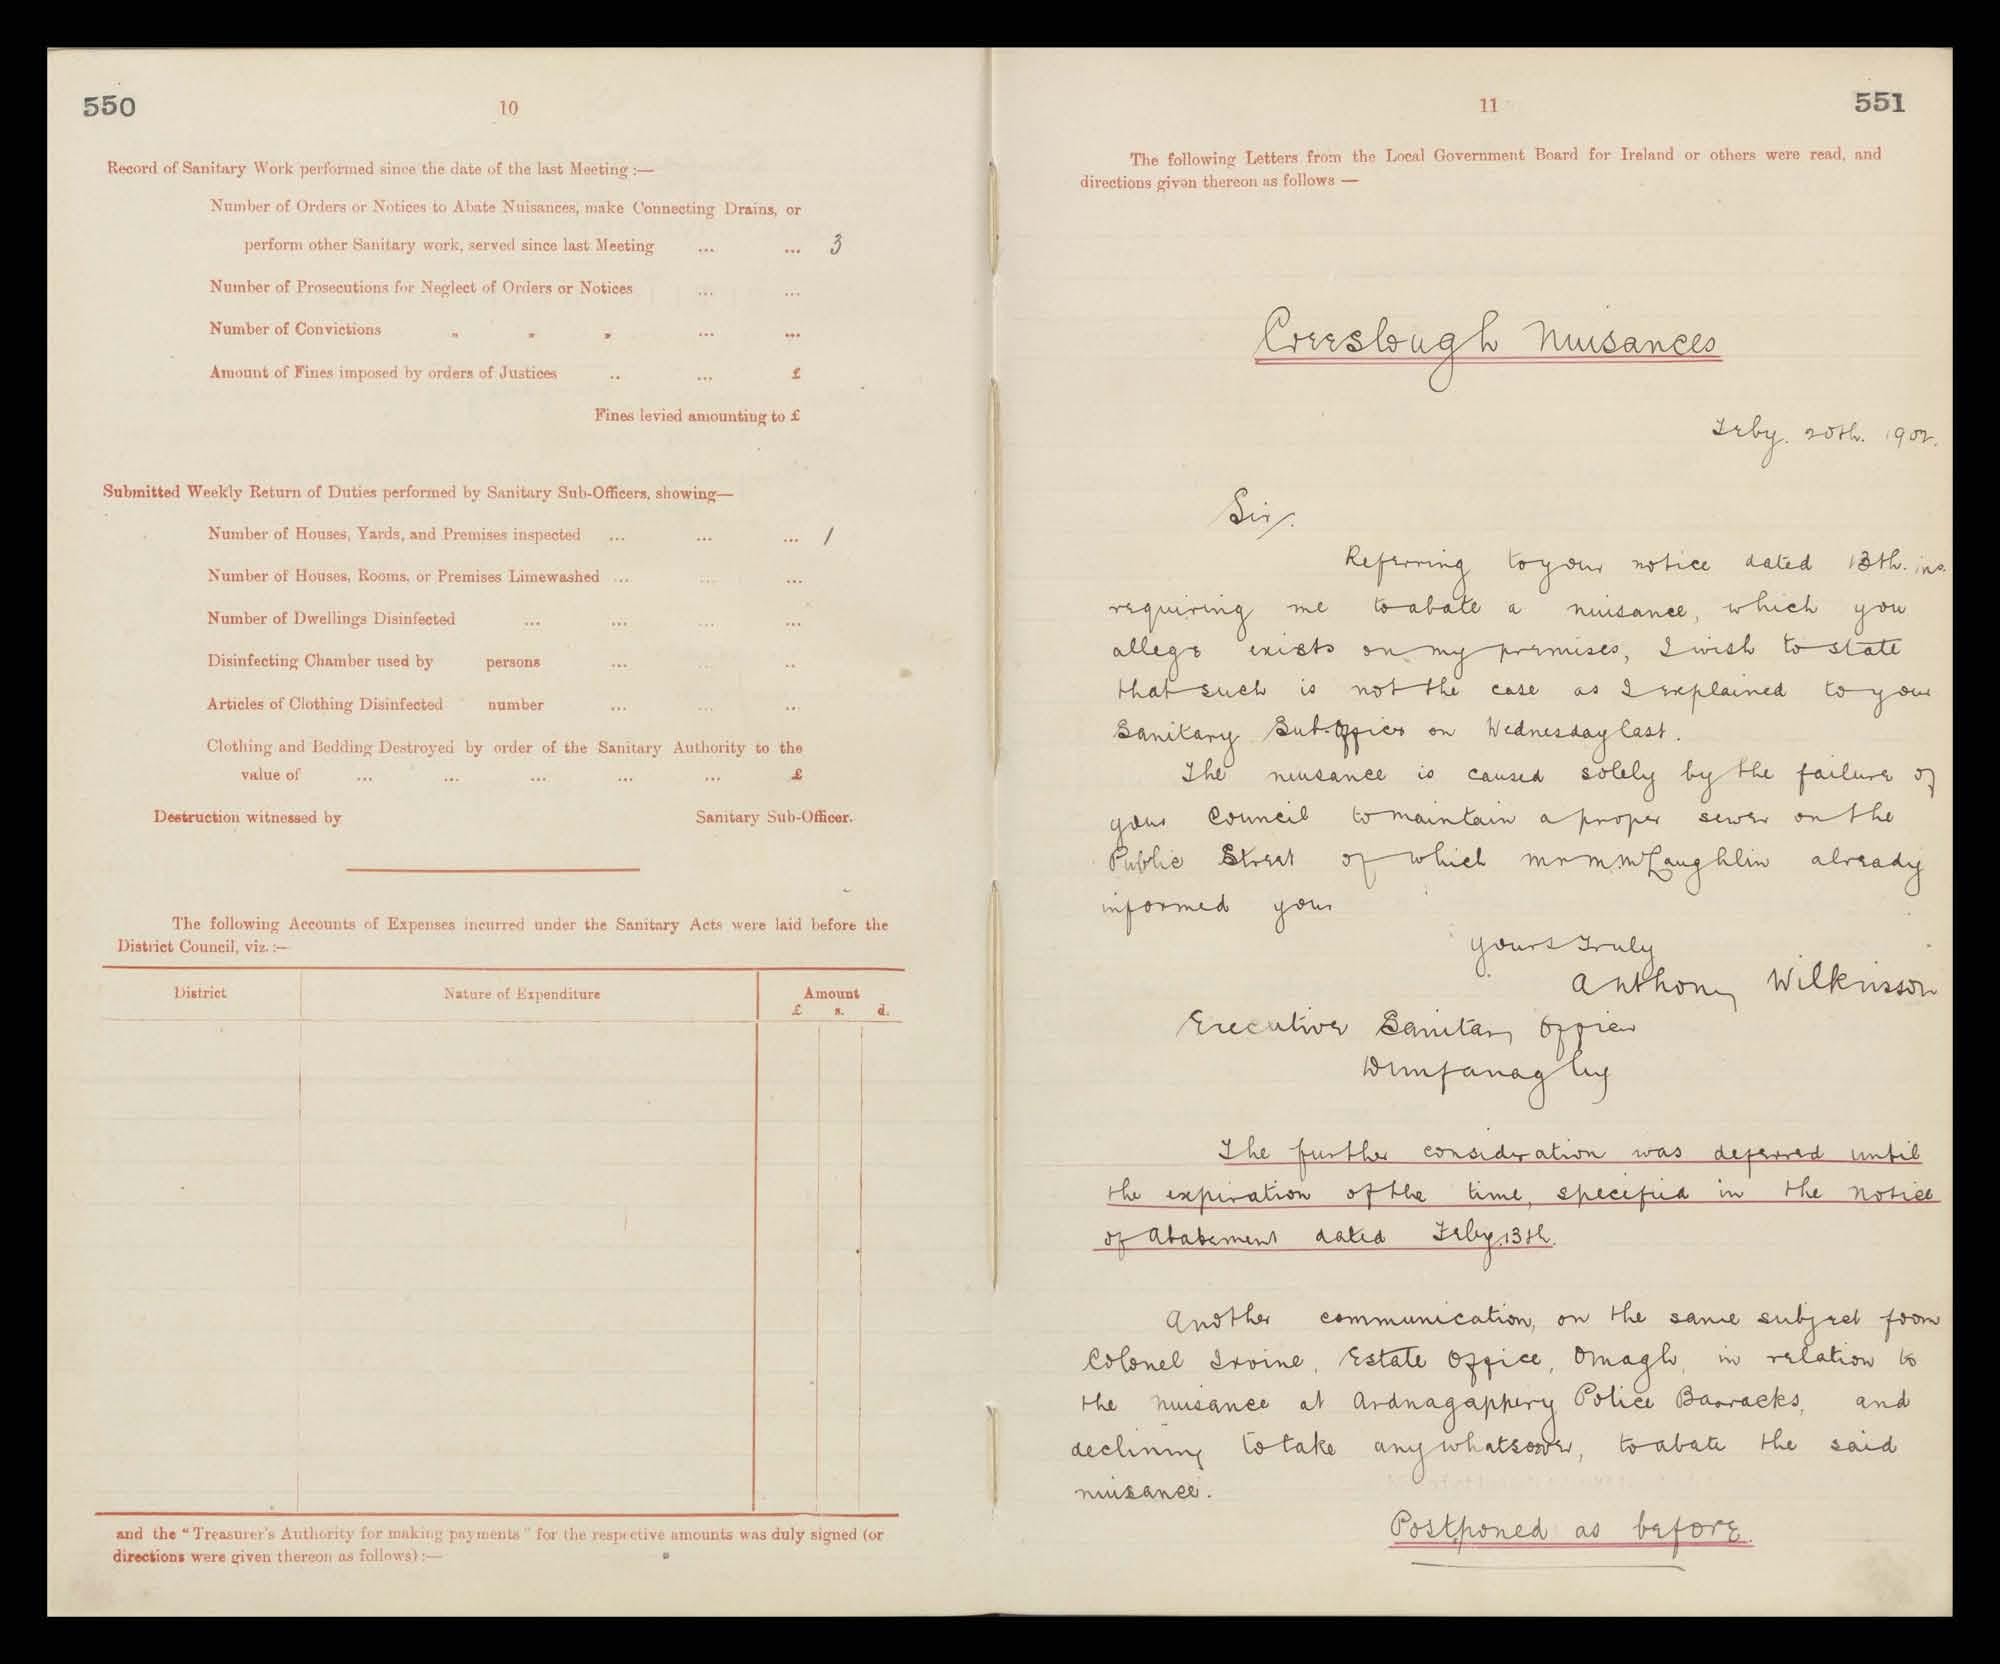 550
10
Record of Sanitary Work performed since the date of the last Meeting :—
Number of Orders or Notices to Abate Nuisances, make Connecting Drains, or
perform other Sanitary work, served since last Meeting ... ... 3
Number of Prosecutions for Neglect of Orders or Notices ... ...
Number of Convictions „ „ „ ... ...
Amount of Fines imposed by orders of Justices .. ... £
Fines levied amounting to £
Submitted Weekly Return of Duties performed by Sanitary Sub-Officers, showing—
Number of Houses, Yards, and Premises inspected ... ... ... 1
Number of Houses, Rooms, or Premises Limewashed ... ... ...
Number of Dwellings Disinfected ... ... ... ...
Disinfecting Chamber used by persons ... ... ..
Articles of Clothing Disinfected number ... ... ...
Clothing and Bedding Destroyed by order of the Sanitary Authority to the
value of ... ... ... ... ... £
Destruction witnessed by Sanitary Sub-Officer.
The following Accounts of Expenses incurred under the Sanitary Acts were laid before the
District Council, viz. :—
District Nature of Expenditure Amount
£ s. d.
and the "Treasurer's Authority for making payments" for the respective amounts was duly signed (or
directions were given thereon as follows) :—
11
551
The following Letters from the Local Government Board for Ireland or others were read, and
directions given thereon as follows —
Creeslough Nuisances
Feby. 20th. 1902.
Sir/.
Referring to your notice dated 13th. ins.
requiring me to abate a nuisance, which you
allege exists on my premises, I wish to state
that such is not the case as I explained to your
Sanitary Sub-Officer on Wednesday last.
The nuisance is caused solely by the failure of
your Council to maintain a proper sewer on the
Public Street of which Mr M. McLaughlin already
informed your
Yours Truly
Anthony Wilkinson
Executive Sanitary Officer
Dunfanaghy
The further consideration was deferred until
the expiration of the time, specified in the notice
of Abatement dated Feby. 13th.
Another communication, on the same subject from
Colonel Irvine, Estate Office, Omagh, in relation to
the nuisance at Ardnagappery Police Barracks, and
declining to take any whatsoever, to abate the said
nuisance.
Postponed as before.